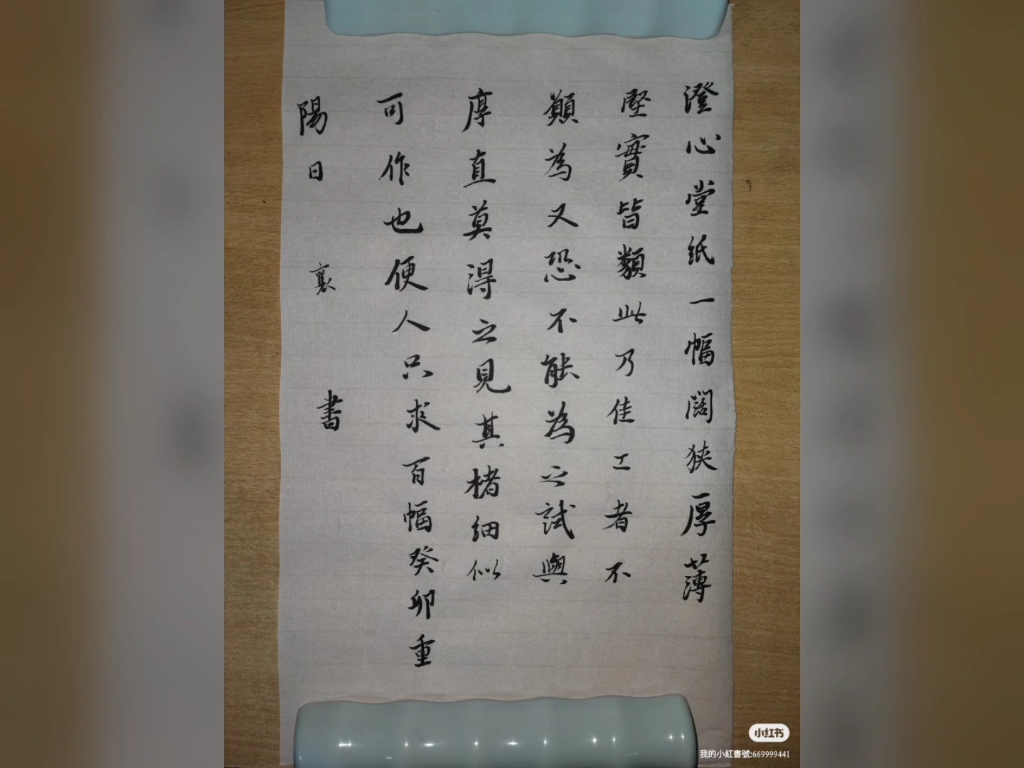 澄心堂紙一幅闊狹厚薄
堅實皆類此乃佳工者不
願為又恐不能為之試與
厚直莫得之見其楮細似
可作也便人只求百幅癸卯重
陽日 襄 書
小红书
我的小紅書號:669999441